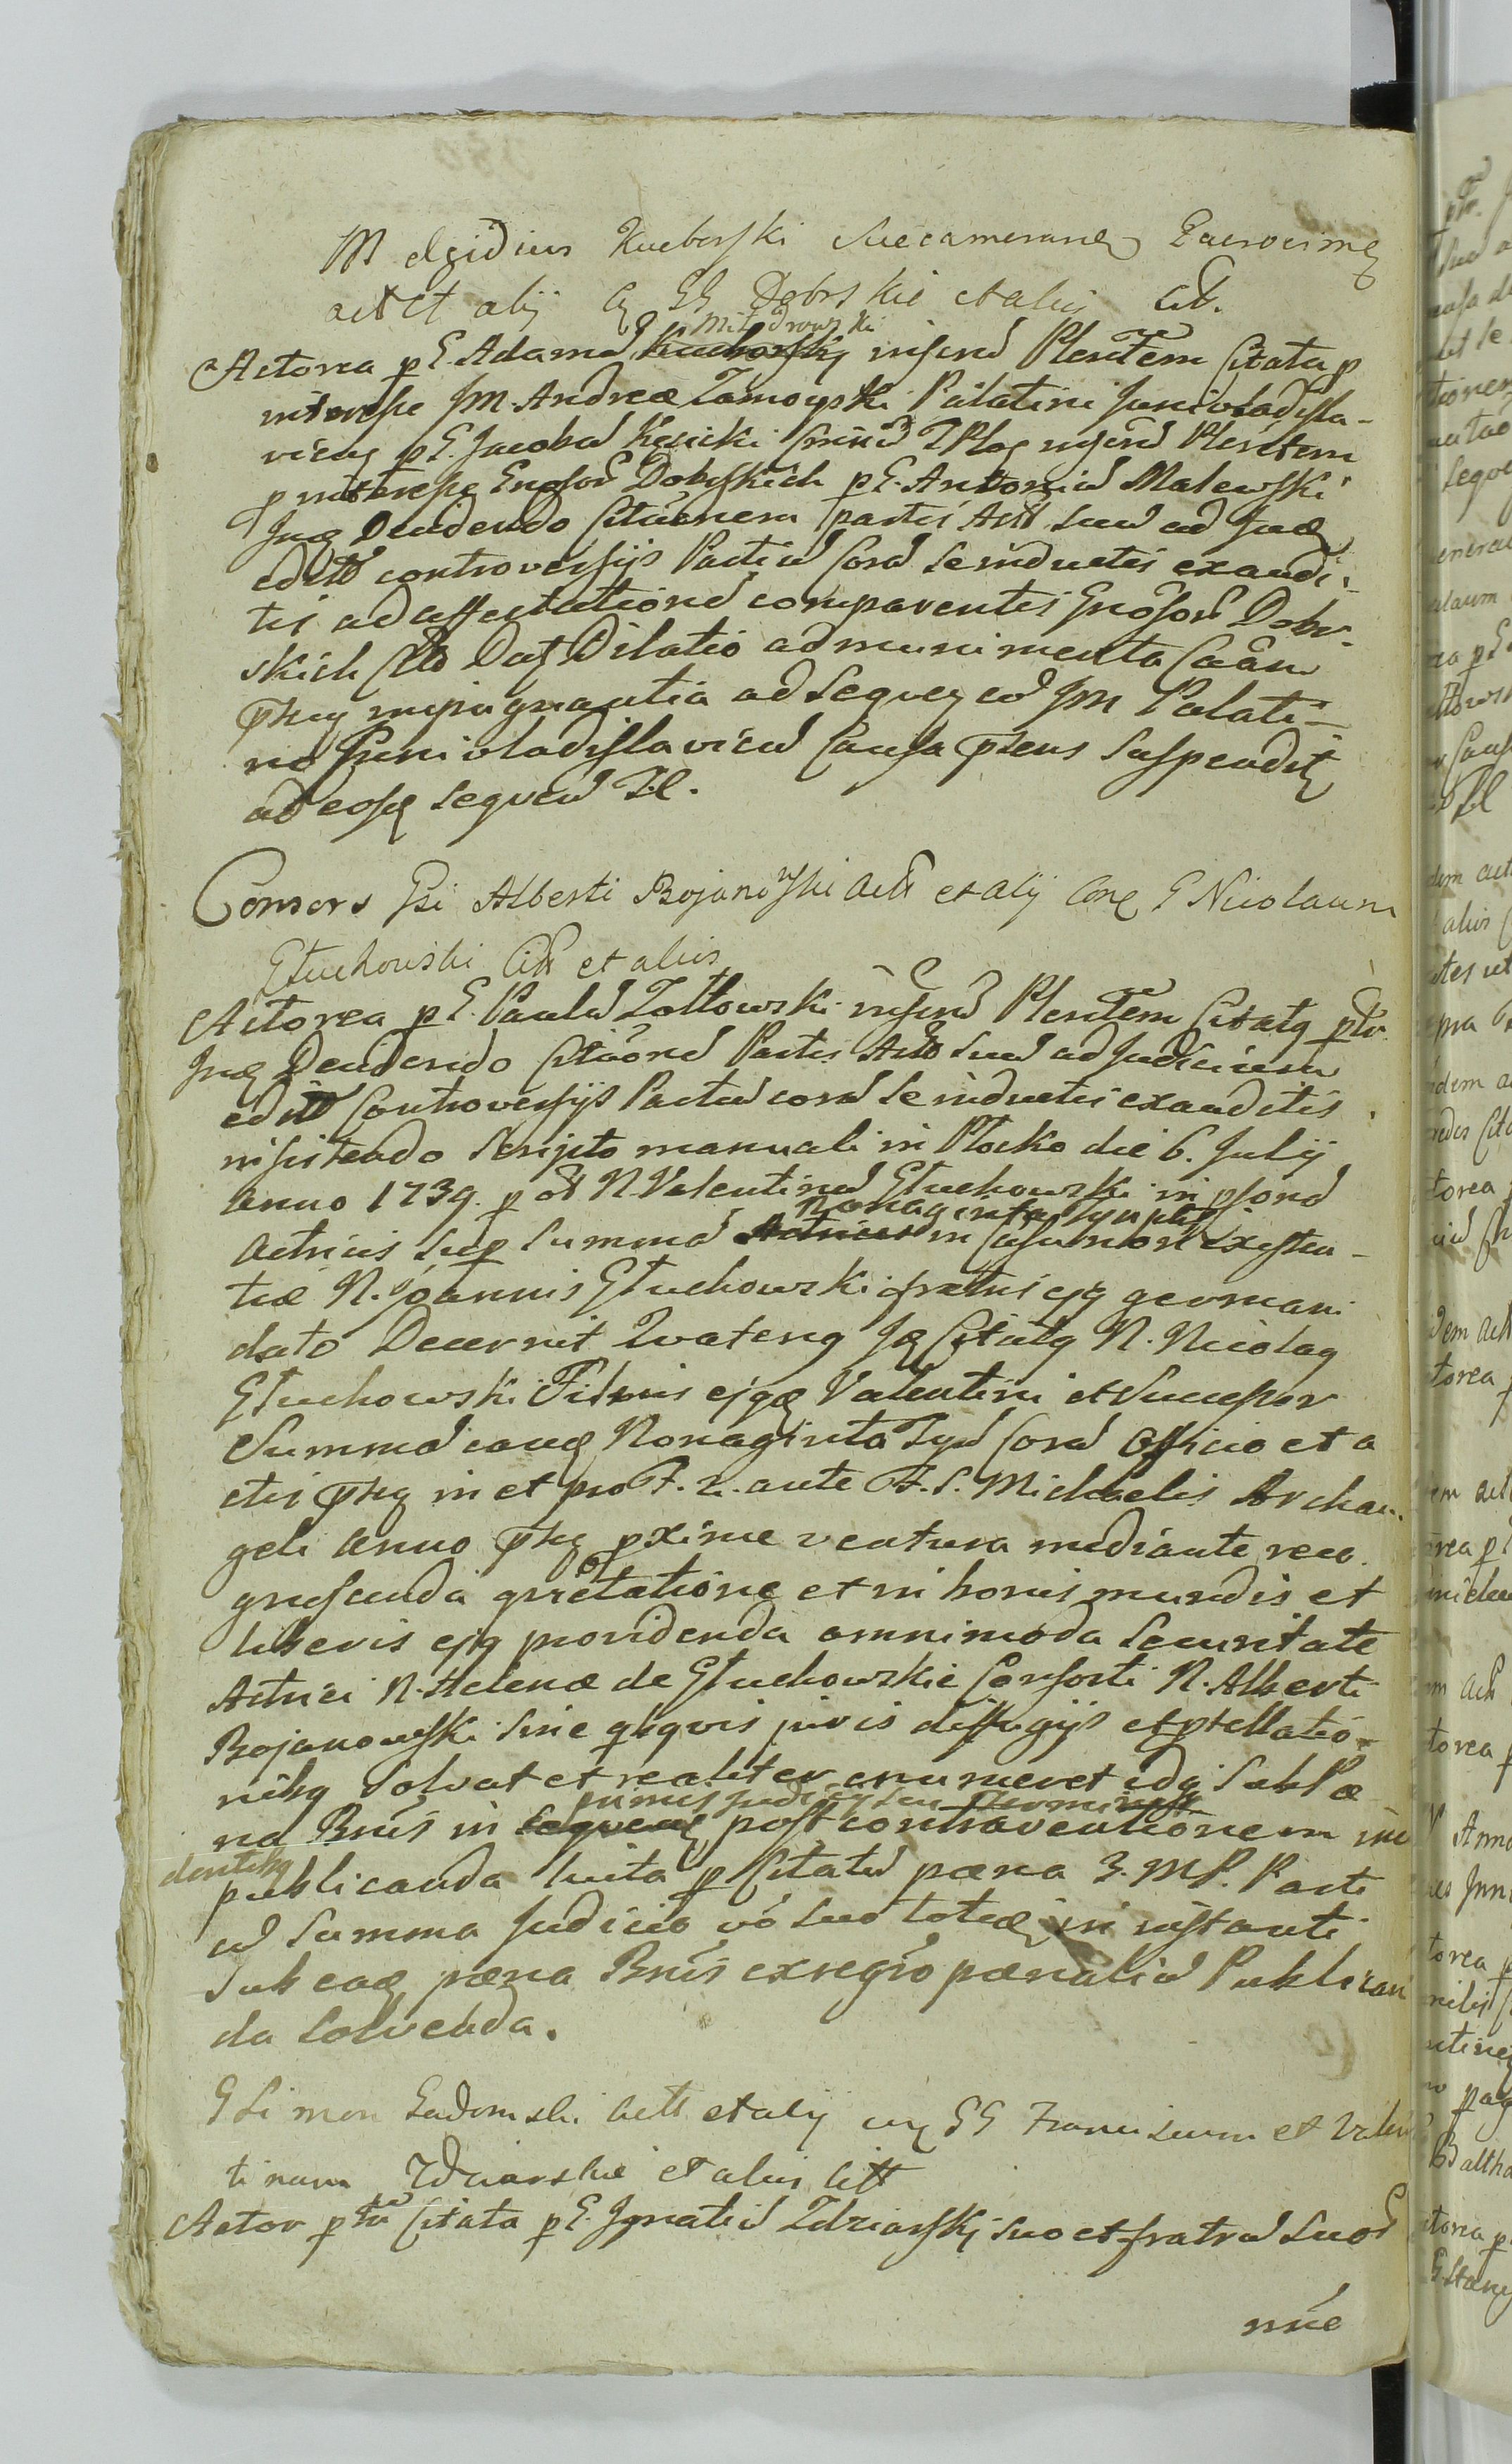 M Aegidius Kucborski Succameraneꝫ Zacrocimeꝫ
actt et alij Cꝫ GG Dobrskie et alios citt.
Actorea p G. Adamū Mitodrowski Kuchorskij infsrm̄ Plenttem Citata p
interesse JM. Andreae Zamoyski Palatini Junivladisla-
vieñ p G. Jacobū Kęsicki Plog infsrm̄ Plenttem
p interesse Gnosor̄ Dobrskich p G. Antoniū Malewski
Juꝫ Decidendo Citāōnem partis Actt suū ad Judꝫ
editt controversijs Partiū corā se inductis exaudi-
tis ad affectationē comparentis Gnosor̄ Dobr-
skich Citt Daꝫ Dilatio ad munimenta Caūm
p̄ntꝫ impugnantia ad sequeꝫ cū JM Palati-
no Junivladislavieñ Causa p̄sens suspenditꝫ
ad eosꝫ sequeñ TT.
Consors Gsi Alberti Bojanowski Actt et alij Cnꝫ G Nicolaum
Głuchowski Citt et alios
Actorea p G. Paulū Zołtowski infsrm̄ Plenttem Citatꝫ ptr
Juꝫ Decidendo Citāōnē Partis Actt suū ad Judicium
editt Controversijs Partiū corā se inductis exauditis
insistendo scripto manuali in Płocko die 6. Julij
Anno 1739. p ol N. Valentinū Głuchowski in psonā
Actricis sup summā Actricis Nonaginta Tynph in casu non existen-
tiæ N. Joannis Głuchowski fratris ejꝫ germani
dato Decernit Quatenꝫ Jꝫ Citatꝫ N. Nicolaꝫ
Głuchowski Filius ejꝫꝫ Valentini et Successor
Summā eanꝫ Nonaginta Tyn̄ Corā Officio et a
ctis p̄ntꝫ in et pro F. 2. ante F. S. Michaelis Archan-
geli Anno p̄ntꝫ pxime ventura mediante reco-
gnoscenda quietatione et in bonis mundis et
liberis ejꝫ providenda omnimoda Securitate
Actrici N. Helenæ de Głuchowskie Consorti N. Alberti
Bojanowski sine qbꝫvis juris diffugijs et ptellatio-
nibꝫ Solvat et realiter enumeret idꝫ sub Pæ
na Bnis in sequeñ primis judicijs seu terminis post contraventionem inci
dentibꝫ
publicanda luita p Citatū pæna 3. MP. Parti
cū summa Judicio vō suo totiæ in instanti
sub eaꝫ pæna Bnis ex regro pænaliū Publican
da solvenda.
G Simon Sadomski Actt et alij cnꝫ GG Franciscum et Valen
tinum Zdziarskie et alios Citt
Actor ptr Citata p G. Ignatiū Zdziarskj suo et fratrū suor̄
nn̄e